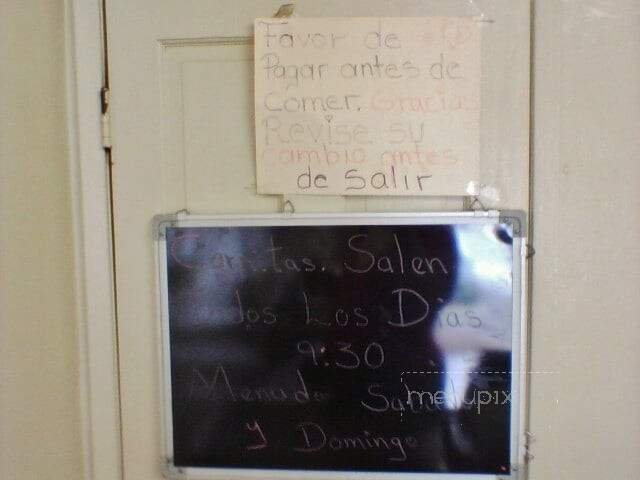 Favor de
Pagar antes de
comer. Gracias
Revise su
cambio antes
de salir
Carnitas. Salen
Todos Los Dias
9:30
Menudo Sabado
y Domingo